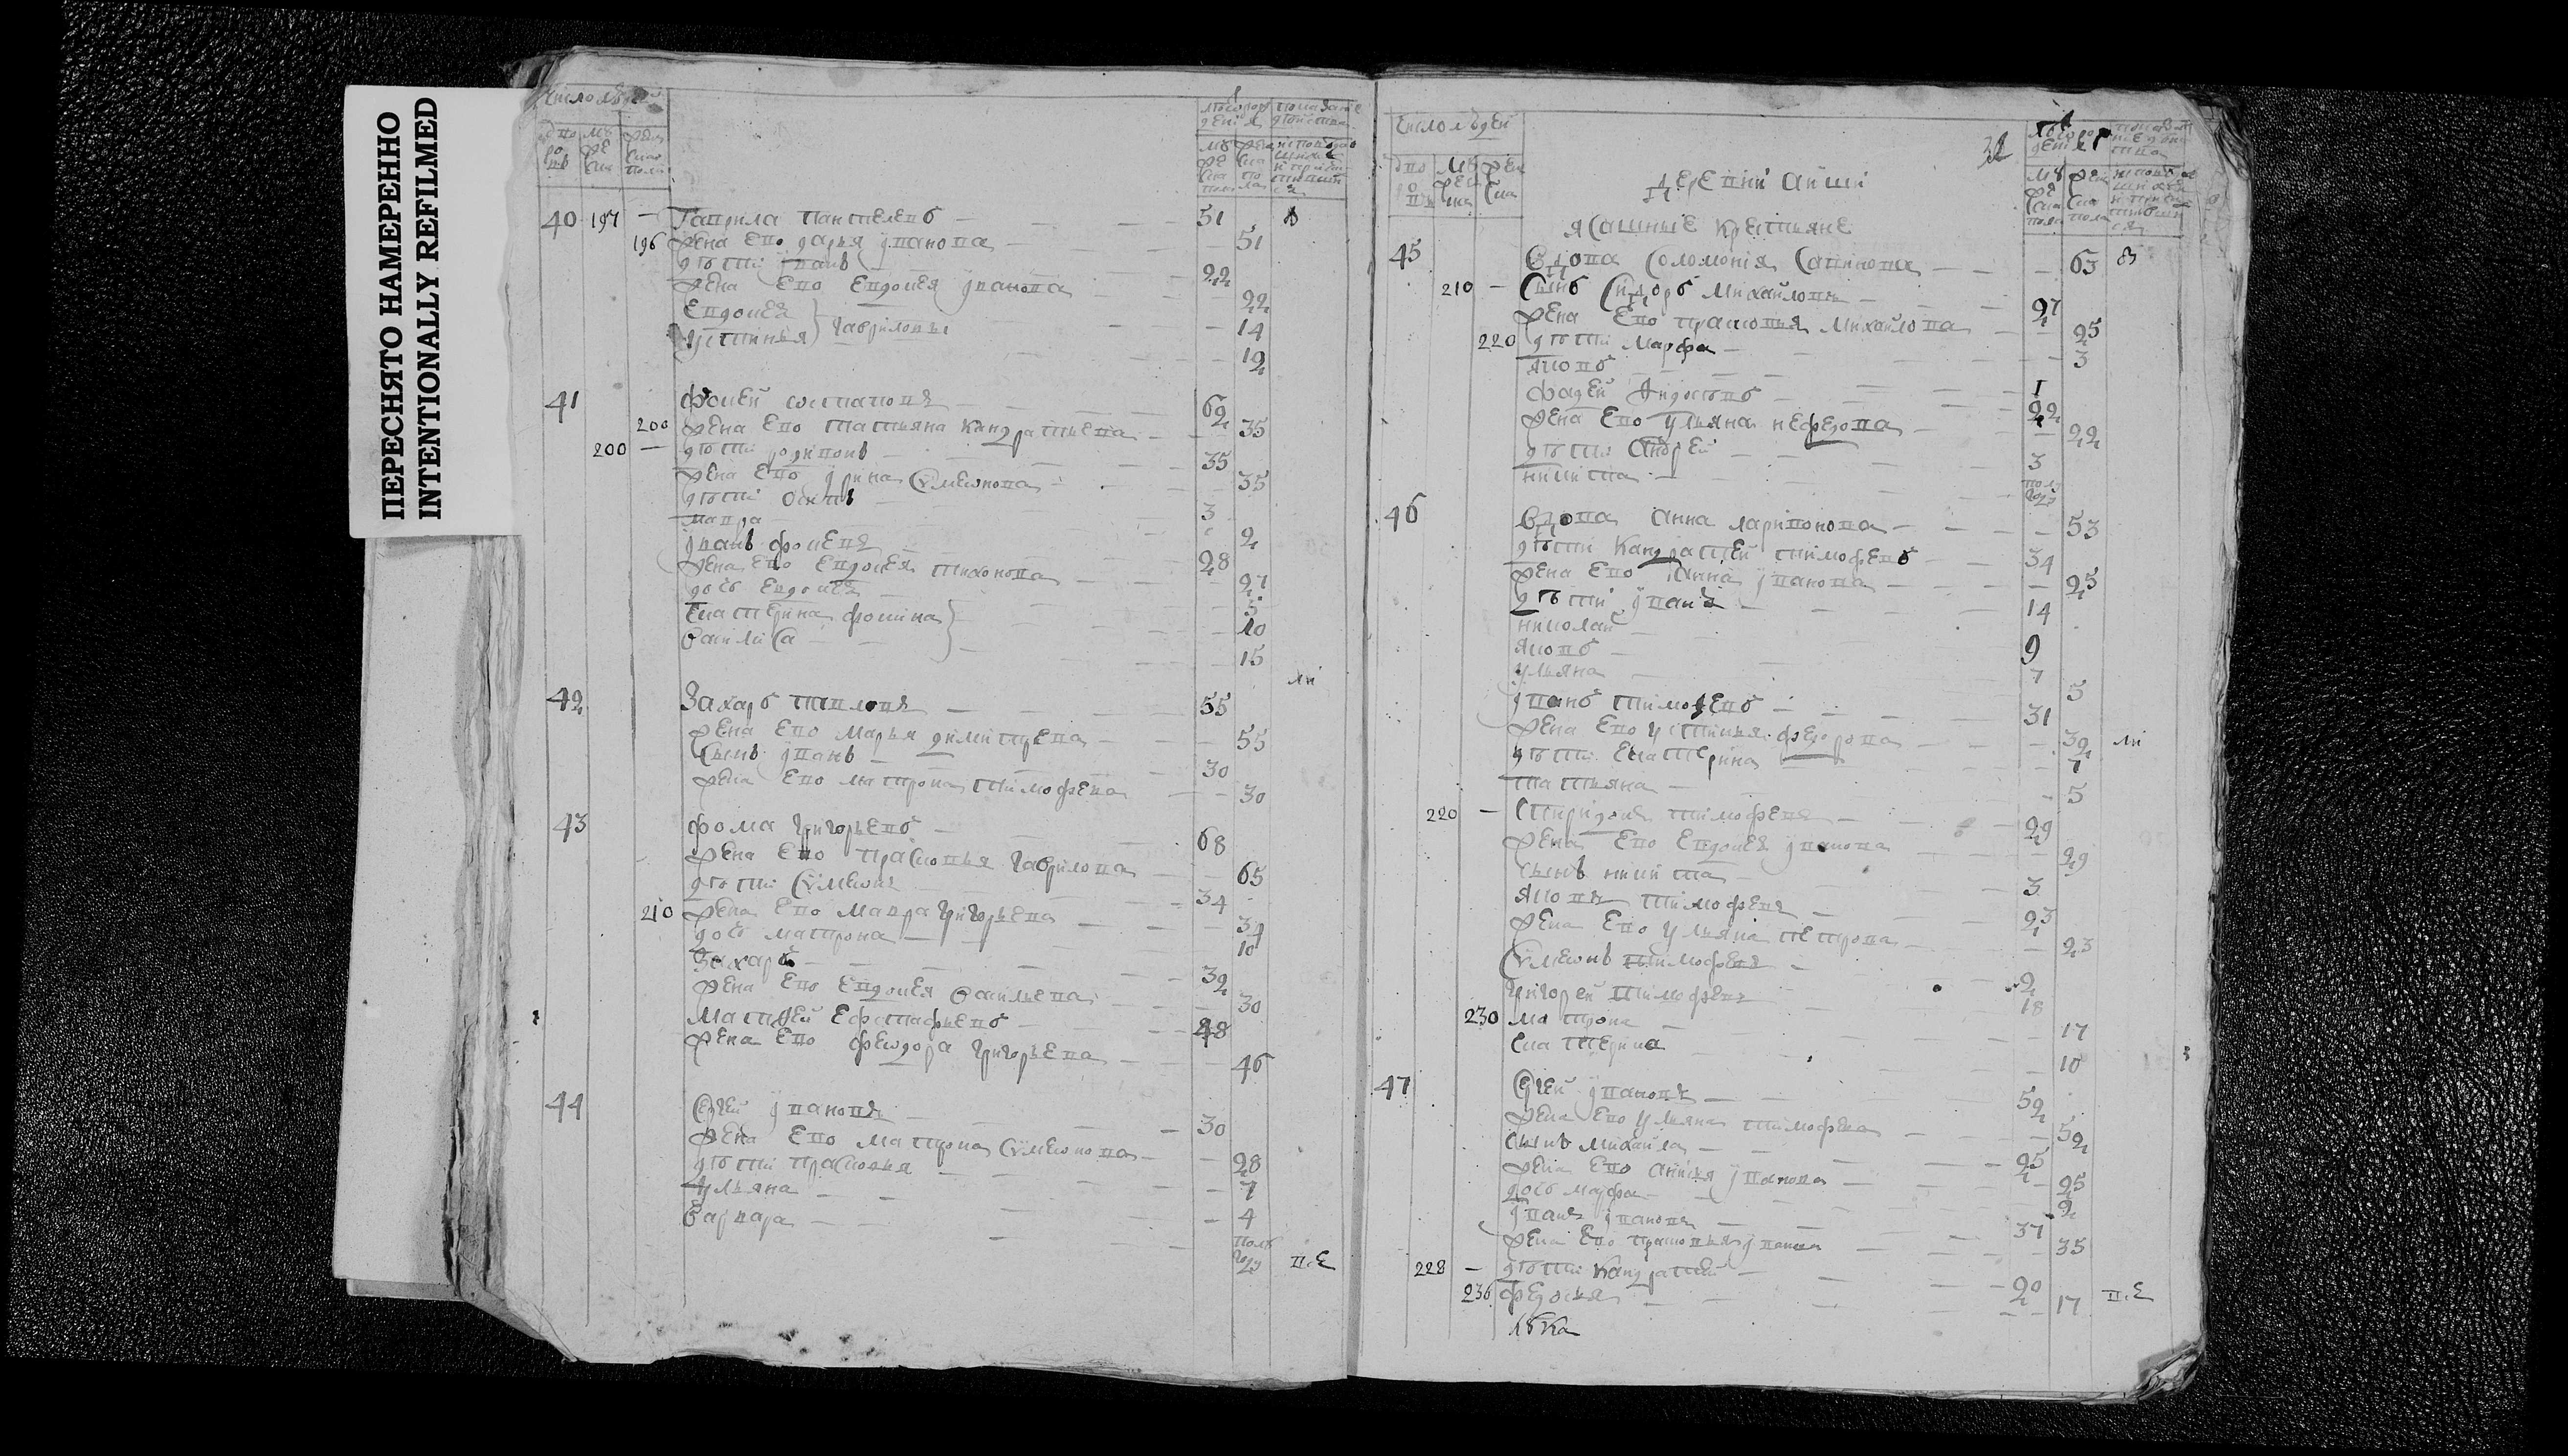 ПЕРЕСНЯТО НАМЕРЕННО
INTENTIONALLY REFILMED
Число людей
40 197 — Гаврила Пантелеевъ — 51
196 жена ево Дарья Иванова — 51
дѣти Иванъ 22
жена ево Евдокея Иванова 22
Евдокея } Гавриловы 14
Устинья 12
41 Фокей 62
200 жена ево Татьяна Кандратьева — 35
200 — дѣти Родионъ — 35
жена ево Ирина Сѵмеонова — 35
дѣти Осипъ 3
Мавра — 2
Иванъ Фокеевъ 28
жена ево Евдокея Тихонова 27
дочь Евдокея 5
Екатерина Фокина } 10
Василиса 15
ли
42 Захаръ 55
жена ево Марья Димитрева 55
сынъ Иванъ — 30
жена ево Матрона Тимофева 30
43 Фома Григорьевъ — 68
жена ево Прасковья Гаврилова 65
дѣти Сѵмеонъ 34
210 жена ево Мавра Григорьева 34
дочь Матрона 10
Захаръ — 32
жена ево Евдокея Васильева 30
Матвей Ефстафьевъ — 48
жена ево Феодора Григорьева 46
44 Сергей Ивановъ 30
жена ево Матрона Сѵмеонова — 28
дѣти Прасковья 7
Ульяна — 4
Варвара — полъ году
п.е
Число людей
32
Деревни Айши
ясашные крестьяне
45 Вдова Соломонія Савинова — 63
210 — сынъ Сидоръ Михайловъ 27
жена ево Прасковья Михайлова 25
220 дѣти Марфа — 3
Яковъ 1
Фадей 22
жена ево Ульяна Нефедова 22
дѣти Андрей 3
Никита — полъ году
46 Вдова Анна Ларионова — 53
дѣти Кандратей Тимофеевъ 34
жена ево Анна Иванова 25
дѣти Иванъ 14
Николай 9
Яковъ 7
Ульяна 5
Иванъ Тимофеевъ 31
жена ево Устинья Федорова 32 ли
дѣти Екатерина 7
Татьяна 5
220 — Спиридонъ Тимофеевъ 29
жена ево Евдокея Иванова 29
сынъ Никита 3
Яковъ Тимофеевъ 23
жена ево Ульяна Петрова 23
Сѵмеонъ Тимофеевъ 2
Григорей Тимофеевъ 18
230 Матрона 17
Екатерина 10
47 Сергей Ивановъ — 52
жена ево Ульяна Тимофева 52
сынъ Михайла 25
жена ево Анисья Иванова 25
дочь Марфа 2
Иванъ Ивановъ 37
жена ево Прасковья Иванова 35
228 — дѣти Кандратей 20
236 Федосья 17 п.е